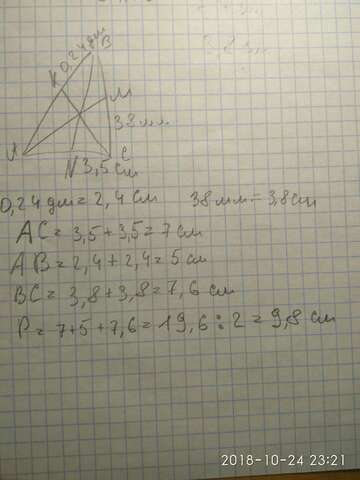 K 0,24 дм B
M
38 мм
A N 3,5 см C
0,24 дм = 2,4 см 38 мм = 3,8 см
AC = 3,5 + 3,5 = 7 см
AB = 2,4 + 2,4 = 5 см
BC = 3,8 + 3,8 = 7,6 см
P = 7 + 5 + 7,6 = 19,6 : 2 = 9,8 см
2018-10-24 23:21